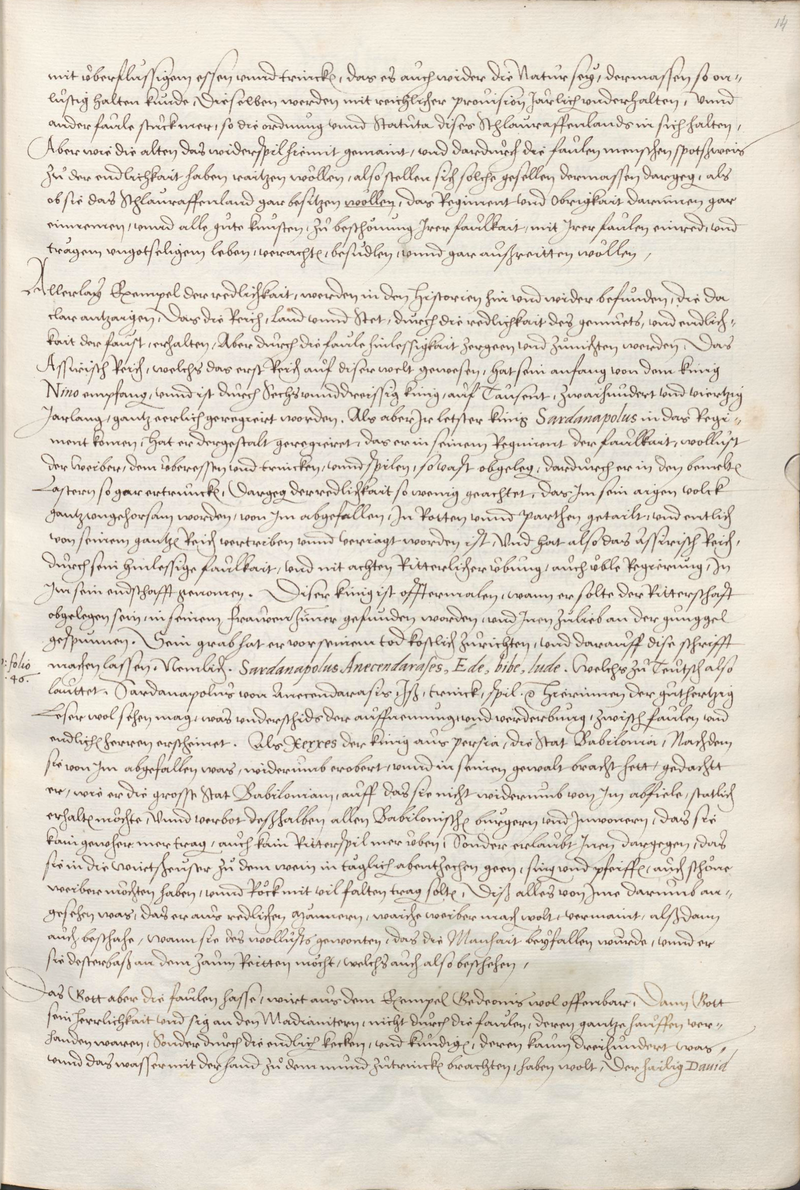 14
mit überflüssigem essen vnnd trincken, das es auch wider die Natur sey, dermassen so on-
lustig halten künde, Dieselben werden mit reichlicher prouision Järlich vnderhalten, Vnnd
andere faule stuckh mer, so die ordnung vnnd Statuta dises Schlauraffenlands in sich halten,
Aber wie die alten das widerspil hiemit gemaint, vnd dardurch die faulen menschen spotsweis
Zu der endlichkait haben raitzen wöllen, also stellen sich solche gesellen dermassen dargegen, als
ob sie das Schlauraffenland gar besitzen wöllen, das Regiment vnd Obrigkait darinnen gar
einnemen, vnnd alle gute künsten, Zu beschönung Jrer faulkait, mit Jrer faulen einred, vnd
trägem vngotseligem leben, verachten, besudlen, vnnd gar außreitten wöllen,
Allerlay Exempel der redlichkait, werden in den Historien hin vnd wider befunden, die da
clar antzaigen, Das die Reich, Land vnnd Stet, durch die redlichkait des gemuets, vnd endlich-
kait der faust, erhalten, Aber durch die faule hinlessigkait zergeen vnd Zunichten werden. Das
Assirisch Reich, welchs das erst Reich auf diser welt gewesen, hat sein anfang von dem König
Nino empfangen, vnnd ist durch Sechsvnddreissig König, auf Tausent, Zwaihundert vnd viertzig
Jar lang, gantz eerlich geregiert worden. Als aber Jr letster König Sardanapolus in das Regi-
ment komen, hat er dergestalt geregieret, das er in seinem Regiment der faulkait, wollust
der weiber, dem überessen vnd trincken, vnnd spilen, so vast obgelegen, dardurch er in den bemelten
Lastern so gar ertruncken, Dargegen der redlichkait so wenig geachtet, das Jm sein aigen volck
gantz vngehorsam worden, von Jm abgefallen, In Rotten vnnd Partheyen getailt, vnd entlich
von seinem gantzen Reich vertriben vnnd veriagt worden ist. Vnd hat also das Assirisch Reich,
durch sein hinlessige faulkait, vnd nit achten Ritterlicher übung, auch üble Regierung, In
Jm sein endschafft genomen. Diser König ist offtermalen, wann er solte der Ritterschafft
obgelegen sein, in seinem Frauenzimer gefunden worden, vnd Jnen Zulieb an der gunggel
gespunnen. Sein grab hat er vor seinem tod köstlich Zurichten, vnd darauff dise schrifft
folio
46.
machen lassen, Nemlich. Sardanapolus Anecendarases, Ede, bibe, lude. Welchs Zu Teutsch also
lauttet. Sardanapolus von Anecendarasis, Iß, trinck, spil. Hierinnen der guthertzig
Leser wol sehen mag, was vnderschids der auffnemung vnd verderbung, zwischen faulen vnd
endlichen herren erscheinet. Als Xerxes der König aus Persia, die Stat Babilonia, Nachdem
sie von Jm abgefallen was, widerumb erobert, vnnd in seinen gewalt bracht hett, gedacht
er, wie er die grosse Stat Babiloniam, auff das sie nicht widerumb von Jm abfiele, statlich
erhalten möchte, Vnnd verbot deßhalben allen Babilonischen burgern vnd Jnwonern, das sie
kain gewehr mer tragen, auch kain Ritterspil mer üben, Sonder erlaubt Jnen dargegen, das
sie in die wirtsheuser Zu dem wein in täglich abentzechen geen, sing vnd pfeiffen, auch schöne
weiber möchten haben, vnnd Röck mit vil falten tragen solten, Diß alles von Jme darumb an-
gesehen was, das er aus redlichen Männern, waiche weiber machen wolt, vermaint, alß dann
auch beschahe, wann sie des wollusts gewonten, das die Manhait beyfallen wurde, vnnd er
sie desterbaß an dem Zaum Reitten möcht, welchs auch also beschehen,
Das Gott aber die faulen hasse, wirt aus dem Exempel Gedeonis wol offenbar, Dann Gott
sein herrlichkait vnd sig an den Madianitern, nicht durch die faulen, deren gantze hauffen ver-
handen waren, Sonder durch die endlichen kecken, vnd kündigen, deren kaum dreihundert was,
vnnd das wasser mit der hand Zu dem mund Zutrincken brachten, haben wolt, Der heilig Dauid